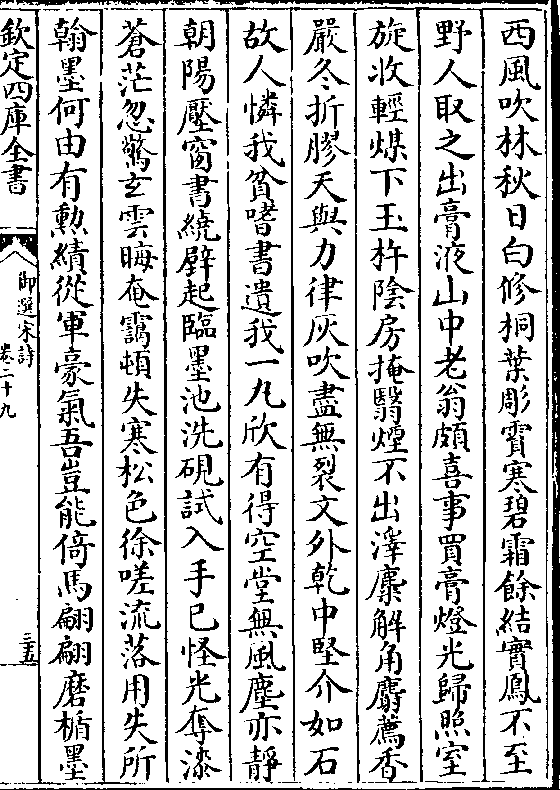 西風吹林秋日白修桐葉彫霣寒碧霜餘結實鳳不至
野人取之出膏液山中老翁頗喜事買膏燈光歸照室
旋收輕煤下玉杵陰房掩翳煙不出澤麋解角麝薦香
嚴冬折膠天與力律灰吹盡無裂文外乾中堅介如石
故人憐我貧嗜書遺我一丸欣有得空堂無風塵亦靜
朝陽壓窗書繞壁起臨墨池洗硯試入手已怪光奪漆
蒼茫忽驚玄雲晦奄靄頓失寒松色徐嗟流落用失所
翰墨何由有勲績從軍豪氣吾豈能倚馬翩翩磨楯墨
欽定四庫全書
御選宋詩
卷二十九
三五